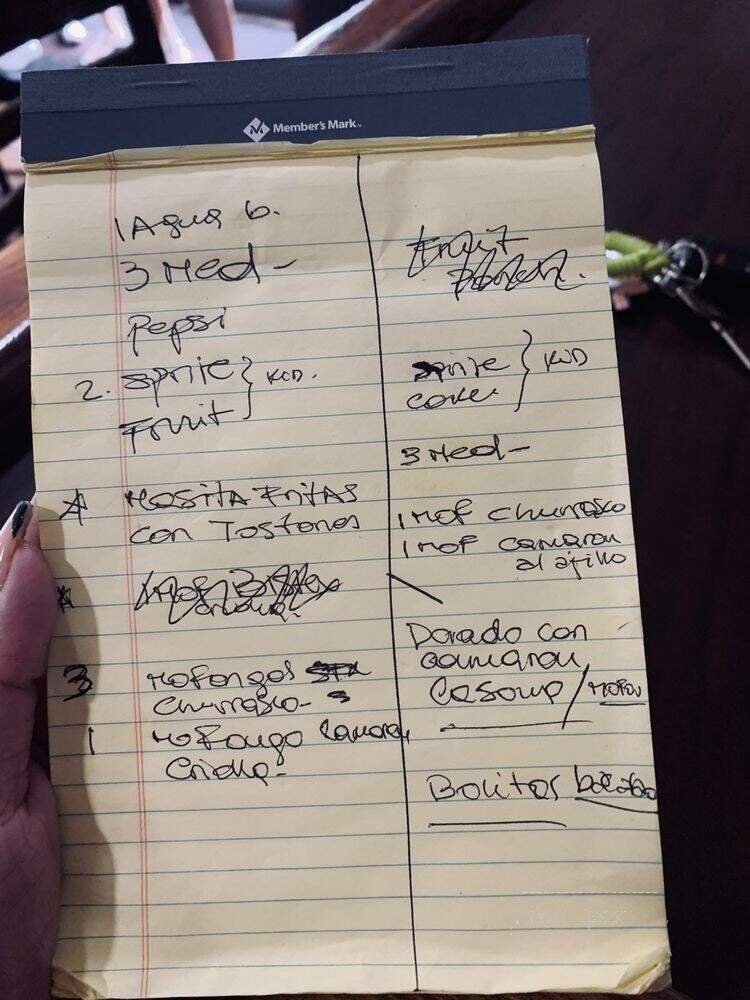 Member's Mark
1 Agua b.
3 Med-
Pepsi
2. Sprite
Fruit
KID.
Mosita Fritas
con Tostones
3 Mofongos
Churrasco-
1 Mofongo Camaron
Criolla-
Fruit
Sprite
Coke
KID
3 Med-
1 Mof churrasco
1 Mof camaron
al ajillo
Dorado con
camaron
/ Mofon
Bolitas